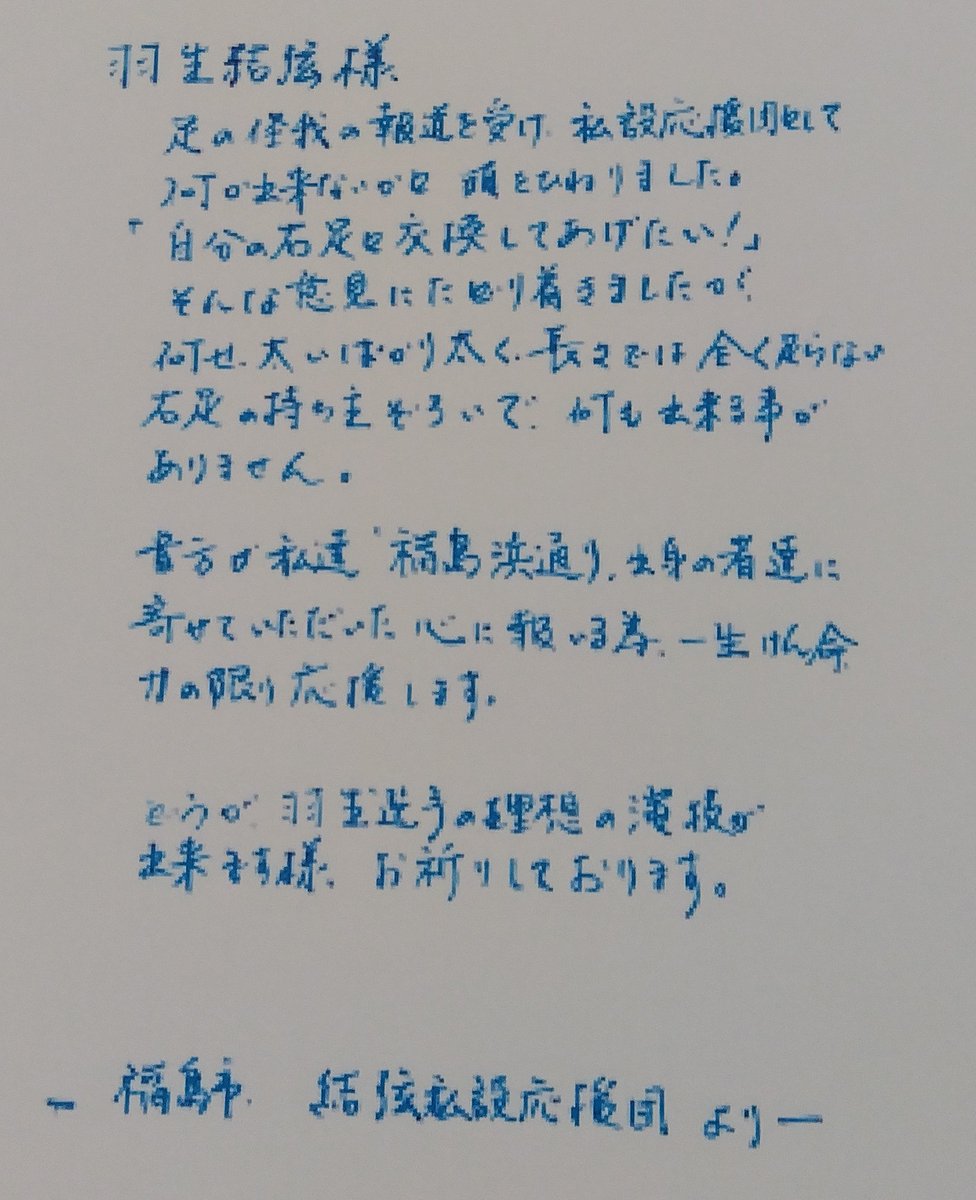 羽生結弦様
足の怪我の報道を受け、私設応援団として
何か出来ないかと 頭をひねりました。
「自分の右足と交換してあげたい!」
そんな意見にたどり着きましたが、
何せ、太いばかり太く、長さでは全く足らない
右足の持ち主ぞろいで、何も出来る事が
ありません。
貴方が私達“福島浜通り”出身の者達に
寄せていただいた心に報いる為、一生けん命
力の限り応援します。
どうか、羽生選手の理想の演技が
出来ます様、お祈りしております。
― 福島市 結弦私設応援団 より ―